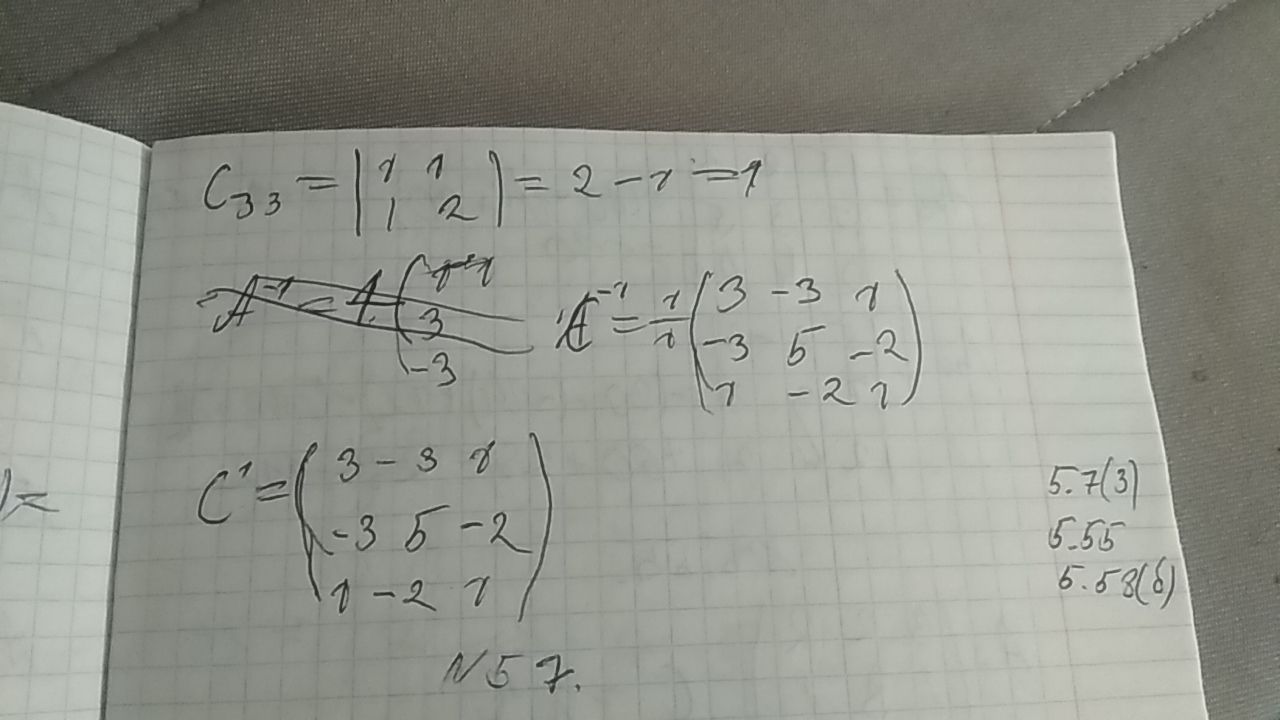 C₃₃ = |1 1; 1 2| = 2 - 1 = 1
A⁻¹ = 1/1 (3 -3 1; -3 5 -2; 1 -2 1)
C' = (3 -3 1; -3 5 -2; 1 -2 1)
5.7(3)
5.55
5.58(б)
N 5 7.